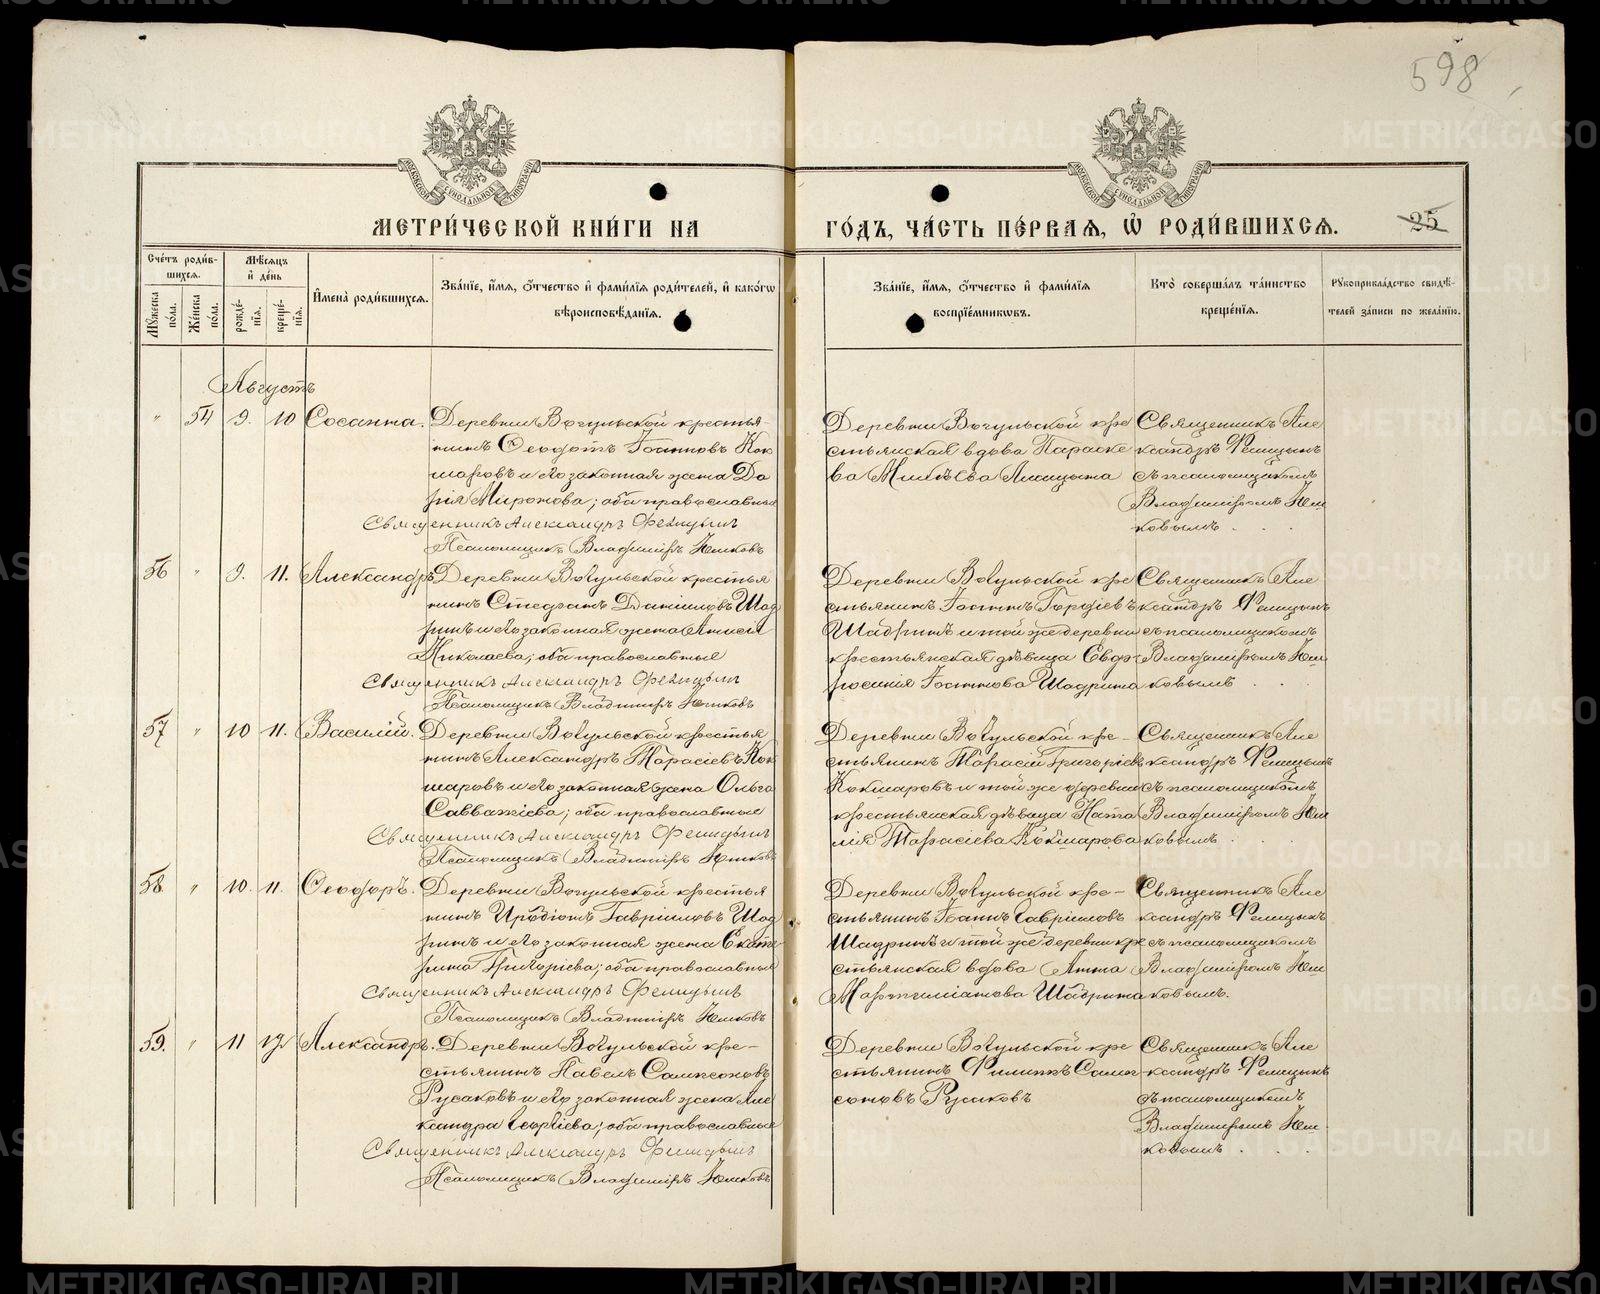 598
МЕТРИ́ЧЕСКОЙ КНИ́ГИ НА ГО́ДЪ, ЧА́СТЬ ПЕ́РВАѦ, Ѡ РОДИ́ВШИХСѦ.
25
Сче́тъ роди́в-
шихсѧ.
Мѣ́сѧцъ
и де́нь
Мꙋ́жеска по́ла.
Же́нска по́ла.
рожде́-
нїѧ.
креще́-
нїѧ.
Имена̀ роди́вшихсѧ.
Зва́нїе, и́мѧ, о́тчество и фами́лїѧ роди́телей, и како́гѡ
вѣроисповѣ́данїѧ.
Зва́нїе, и́мѧ, о́тчество и фами́лїѧ
воспрїе́мникѡвъ.
Кто̀ соверша́лъ та́инство
креще́нїѧ.
Рꙋкоприкла́дство свидѣ́-
телей за́писи по жела́нїю.
Августъ
" 54 9. 10 Сосанна.
Деревни Вогульской крестья-
нинъ Ѳеодотъ Іоанновъ Кок
шаровъ и его законная жена Да
рія Миронова; оба православные
Священникъ Александръ Фелицынъ
Псаломщикъ Владиміръ Юшковъ
Деревни Вогульской кре
стьянская вдова Параске
ва
Священникъ Але
ксандръ Фелицынъ
съ псаломщикомъ
Владиміромъ Юш
ковымъ
56 " 9. 11. Александръ
Деревни Вогульской крестья
нинъ Стефанъ Даніиловъ Шад
ринъ и его законная жена Анисія
Николаева; оба православные
Священникъ Александръ Фелицынъ
Псаломщикъ Владиміръ Юшковъ
Деревни Вогульской кре
стьянинъ Іоаннъ
Шадринъ и той же деревни
крестьянская дѣвица Евф-
росинія Іоаннова Шадрина
Священникъ Але
ксандръ Фелицынъ
съ псаломщикомъ
Владиміромъ Юш
ковымъ
57 " 10 11. Василій.
Деревни Вогульской крестья
нинъ Александръ Тарасіевъ Кок
шаровъ и его законная жена Ольга
Савватіева; оба православные
Священникъ Александръ Фелицынъ
Псаломщикъ Владиміръ Юшковъ
Деревни Вогульской кре-
стьянинъ Тарасій Григоріевъ
Кокшаровъ и той же деревни
крестьянская дѣвица Ната
лія Тарасіева Кокшарова
Священникъ Але
ксандръ Фелицынъ
съ псаломщикомъ
Владиміромъ Юш
ковымъ
58. " 10. 11. Ѳеодоръ.
Деревни Вогульской крестья
нинъ Иродіонъ Гавріиловъ Шад
ринъ и его законная жена Екате
рина Григоріева; оба православные
Священникъ Александръ Фелицынъ
Псаломщикъ Владиміръ Юшковъ
Деревни Вогульской кре-
стьянинъ Іоаннъ Гавріиловъ
Шадринъ и той же деревни кре
стьянская вдова Анна
Мартиніанова Шадрина
Священникъ Але
ксандръ Фелицынъ
съ псаломщикомъ
Владиміромъ Юш
ковымъ.
59. " 11 12 Александръ.
Деревни Вогульской кре-
стьянинъ Павелъ Сампсоновъ
Русаковъ и его законная жена Але
ксандра Георгіева; оба православные
Священникъ Александръ Фелицынъ
Псаломщикъ Владиміръ Юшковъ
Деревни Вогульской кре
стьянинъ Филиппъ Самп
соновъ Русаковъ
Священникъ Але
ксандръ Фелицынъ
съ псаломщикомъ
Владиміромъ Юш
ковымъ
METRIKI.GASO-URAL.RU